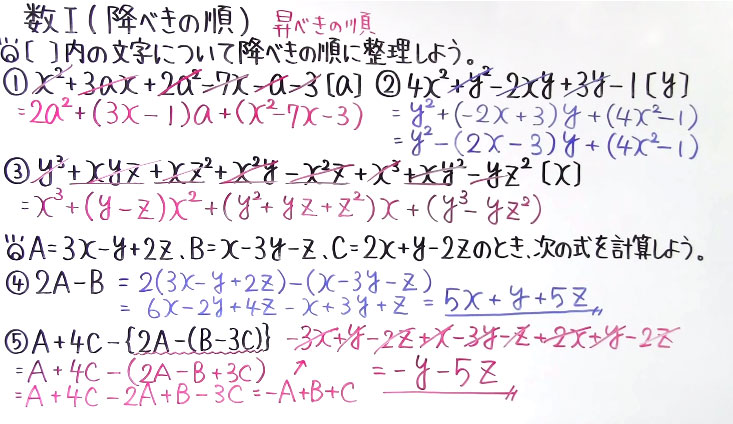 数I(降べきの順) 昇べきの順
[ ]内の文字について降べきの順に整理しよう。
① x²+3ax+2a²-7x-a-3[a] ② 4x²+y²-2xy+3y-1[y]
=2a²+(3x-1)a+(x²-7x-3) = y²+(-2x+3)y+(4x²-1)
= y²-(2x-3)y+(4x²-1)
③ y³+xyz+xz²+x²y-x²z+x³+xy²-yz²[x]
=x³+(y-z)x²+(y²+yz+z²)x+(y³-yz²)
A=3x-y+2z、B=x-3y-z、C=2x+y-2zのとき、次の式を計算しよう。
④ 2A-B = 2(3x-y+2z)-(x-3y-z)
= 6x-2y+4z-x+3y+z = 5x+y+5z
⑤ A+4C-{2A-(B-3C)} -3x+y-2z+x-3y-z+2x+y-2z
=A+4C-(2A-B+3C) = -y-5z
=A+4C-2A+B-3C=-A+B+C